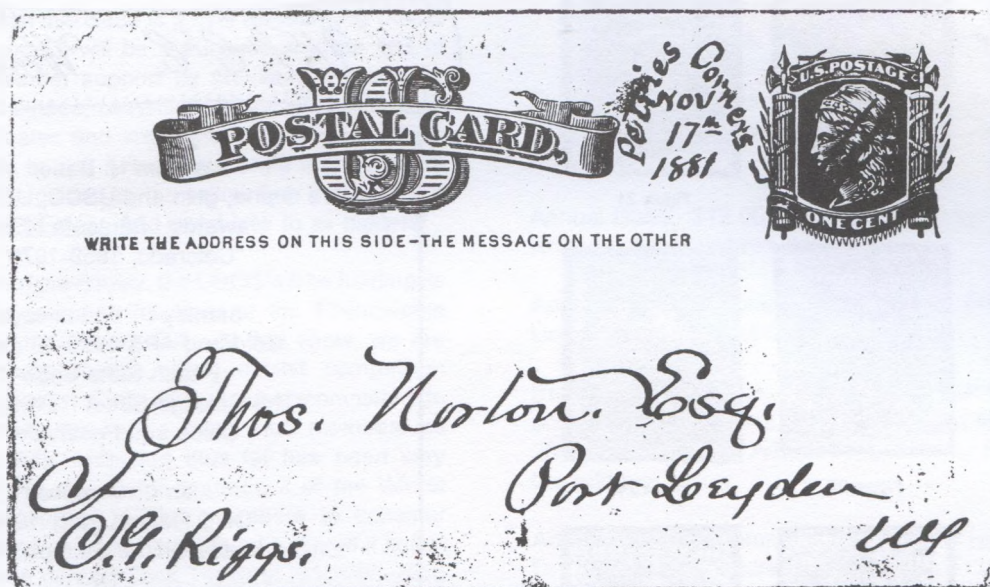 US
POSTAL CARD.
Petries Corners
NOV
17th
1881
U.S. POSTAGE
ONE CENT
WRITE THE ADDRESS ON THIS SIDE-THE MESSAGE ON THE OTHER
Thos. Norton. Esq.
Port Leyden
NY
Riggs.